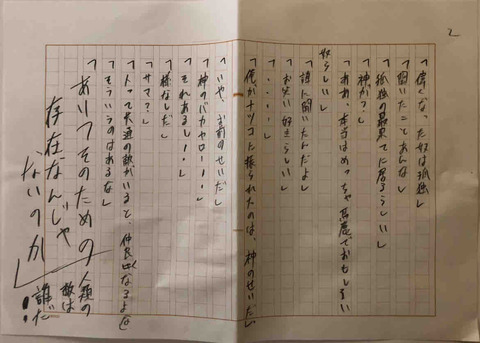 2
「偉くなった奴は孤独」
「聞いたことあんな」
「孤独の最果てに居るらしい」
「神が?」
「ああ、本当はめっちゃ馬鹿でおもしろい
奴らしい」
「誰に聞いたんだよ」
「お笑い好きらしい」
「・・・・」
「俺がナツコに振られたのは、神のせいだ」
「いや、お前のせいだ」
「神のバカヤロー・・・」
「それあるし・・」
「様なしだ」
「サマ?」
「人って共通の敵がいると、仲良くなるよな」
「そういうのはあるな」
あいつそのための
存在なんじゃ
ないのか!
人類の
敵は
誰だ